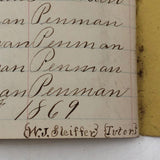 Penman
an Penman
an Penman
an Penman
an Penman
1869
{W.J. Sleiffer} {Tutor}